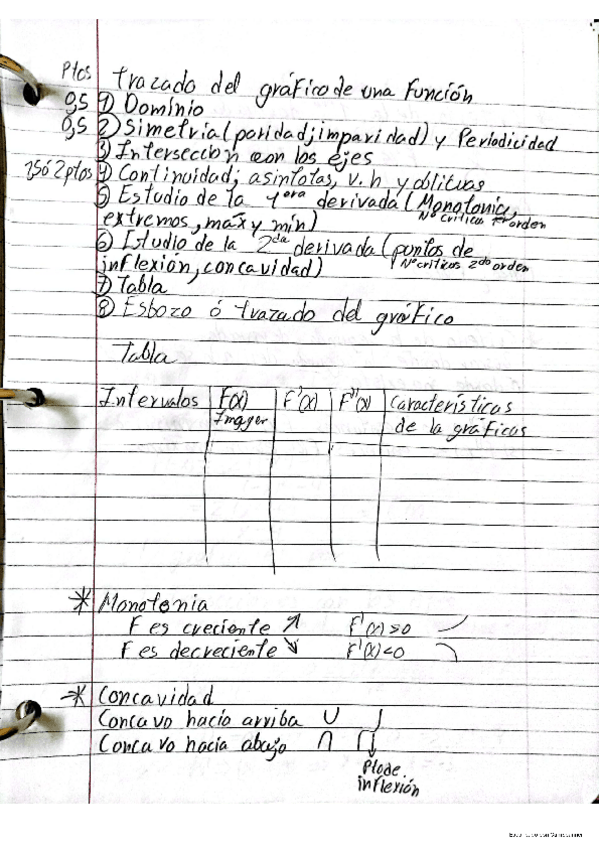 Ptos Trazado del gráfico de una Función
0,5 1) Dominio
0,5 2) Simetria (paridad; imparidad) y Periodicidad
3) Interseccion con los ejes
1,5 ó 2 ptos 4) Continuidad; asintotas, v. h y oblicuas
5) Estudio de la 1era derivada (Monotonia,
Nº criticos 1er orden
extremos, máx y min)
6) Estudio de la 2da derivada (puntos de
Nº criticos 2do orden
inflexión, concavidad)
7) Tabla
8) Esbozo ó trazado del gráfico
Tabla
Intervalos F(x) F'(x) F''(x) características
de la gráficas
* Monotonia
F es creciente ↗ F'(x)>0
F es decreciente ↘ F'(x)<0
* Concavidad
Concavo hacia arriba ∪
Concavo hacia abajo ∩
inflexión